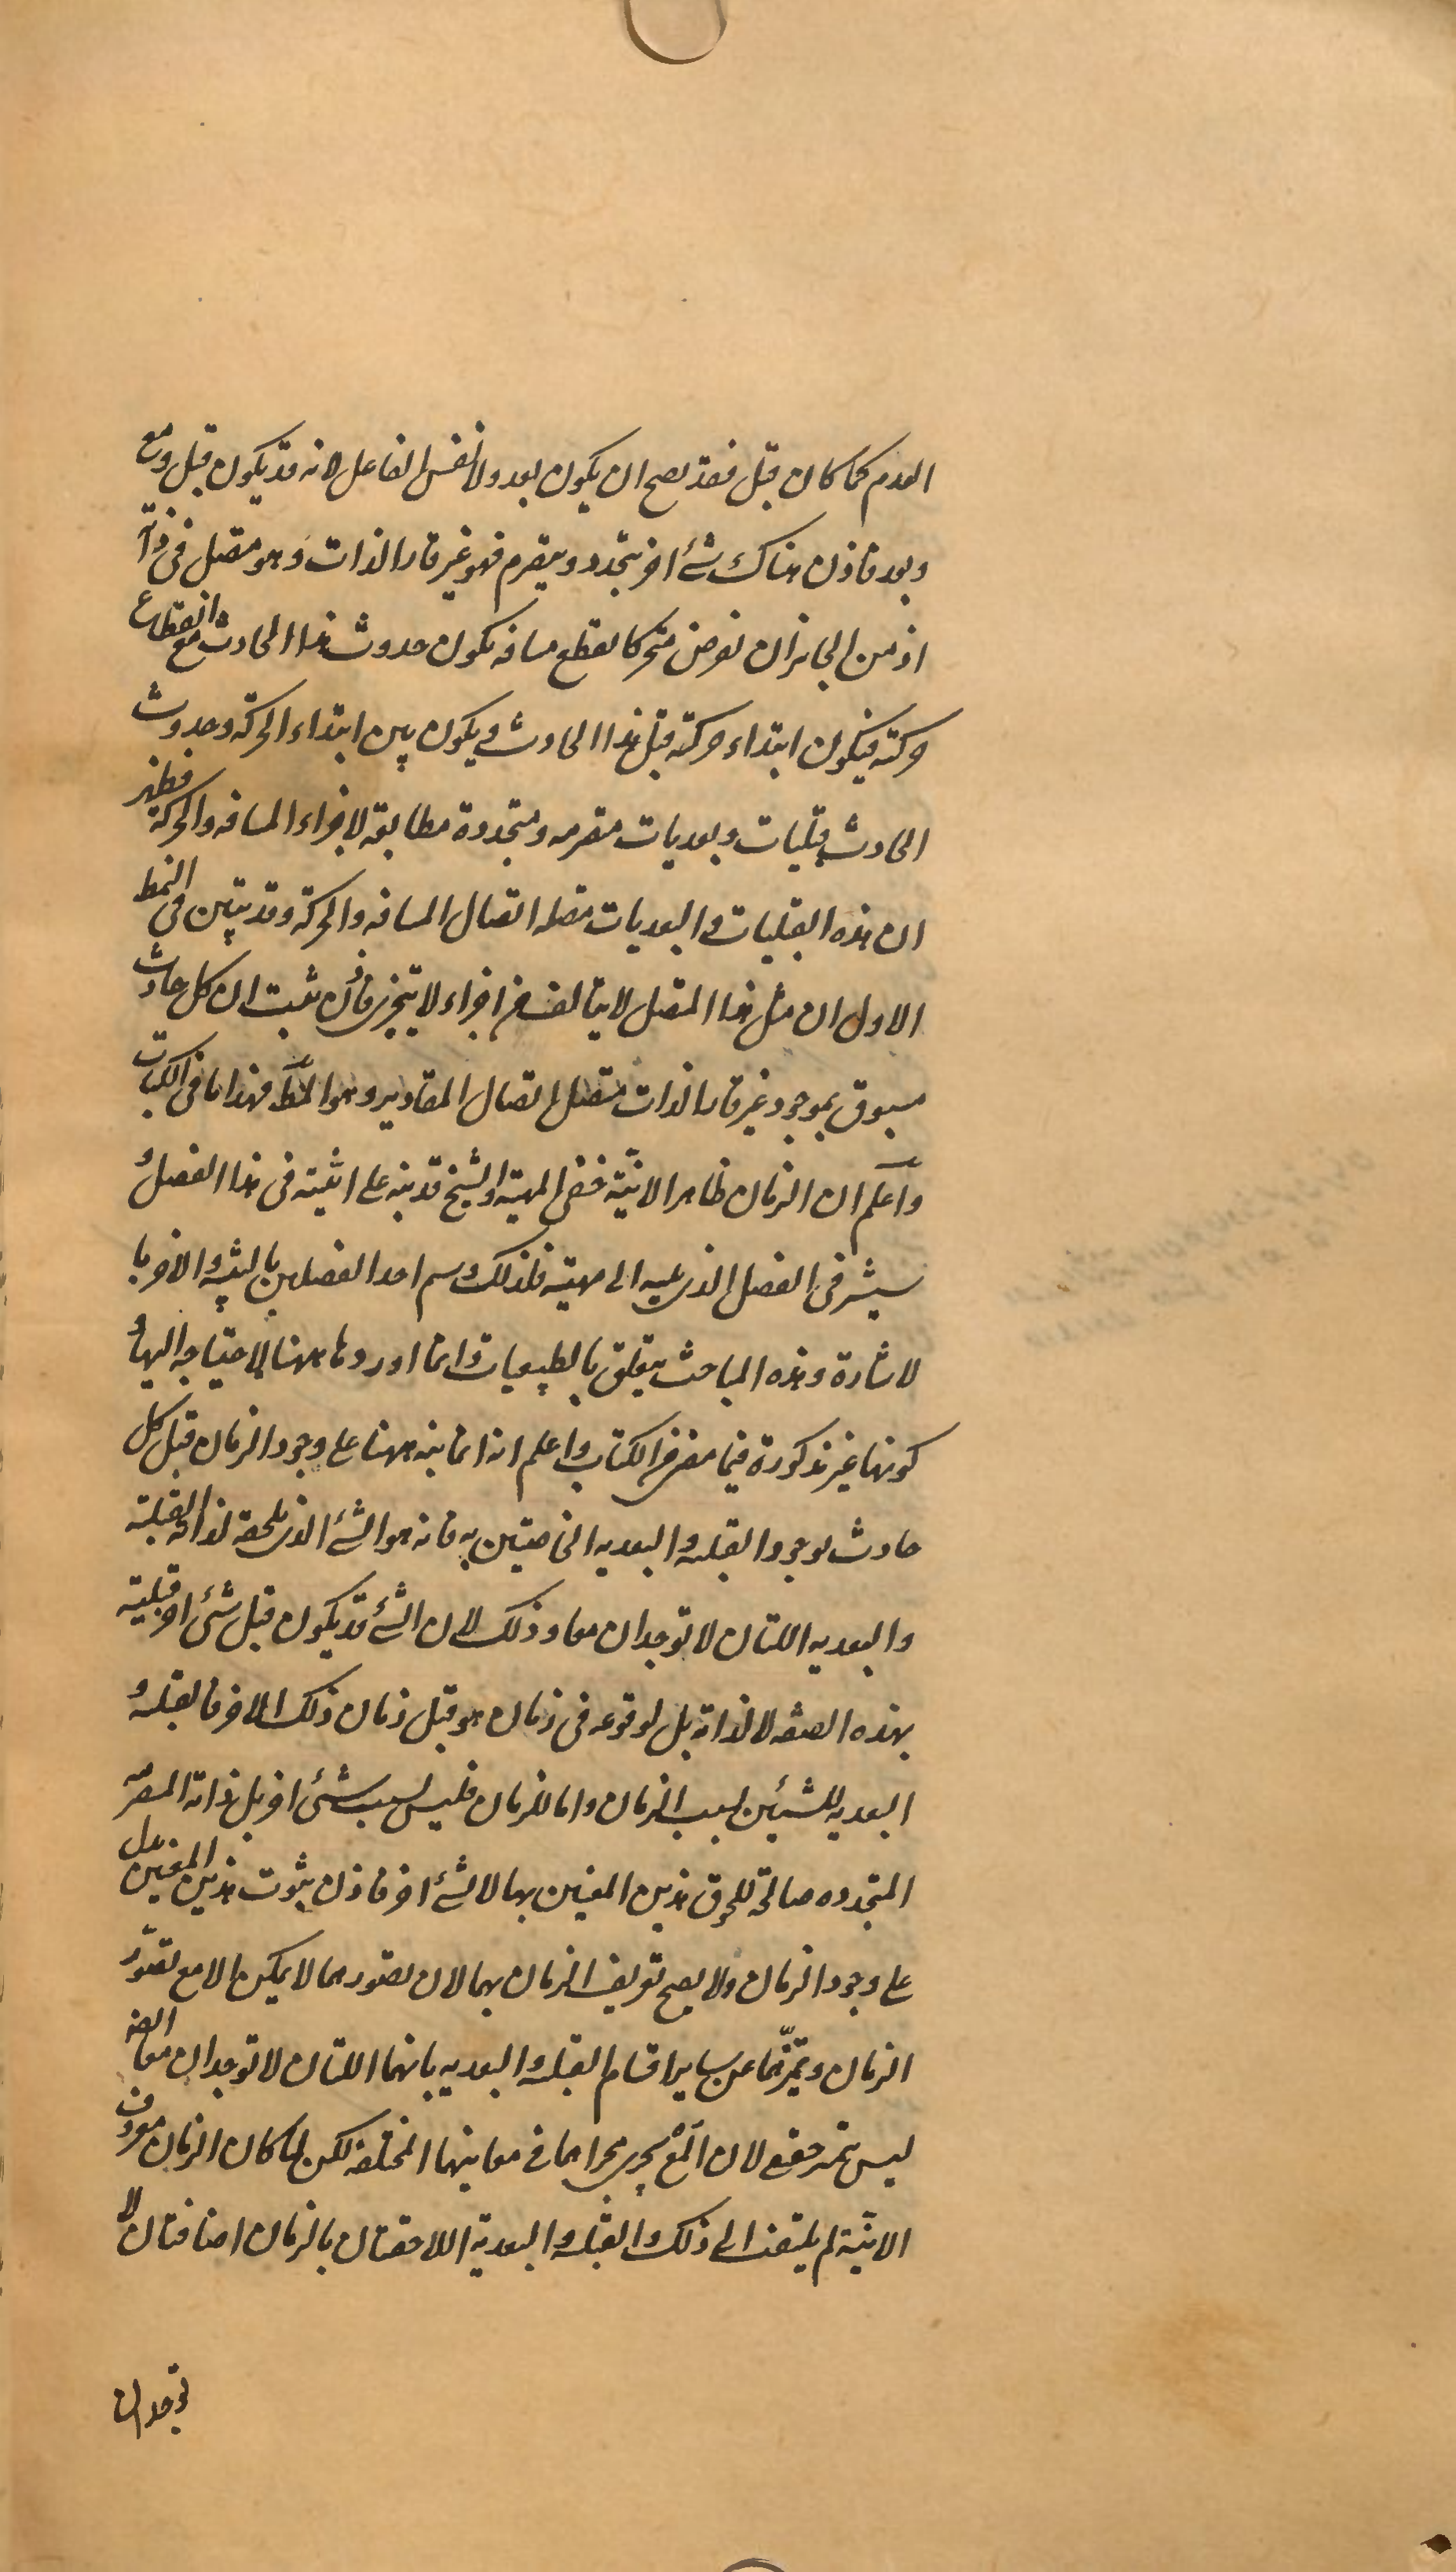 العدم كما كان قبل فقد يصح ان يكون بعد ولا نفس الفاعل لانه قد يكون قبل ومع
وبعد فاذن هناك شئ اخر يتجدد ويتصرم فهو غير قار الذات وهو متصل فى ذاته
اذ من الجايز ان نفرض متحركا يقطع مسافه يكون حدوث هذا الحادث مع انقطاع
حركته فيكون ابتداء حركته قبل هذا الحادث ويكون بين ابتداء الحركة وحدوث
الحادث قبليات وبعديات متصرمه ومتجددة مطابقه لاجزاء المسافه والحركة فظهر
ان هذه القبليات والبعديات متصله اتصال المسافه والحركة وقد تبين فى النمط
الاول ان مثل هذا المتصل لا يتالف من اجزاء لا يتجزى فاذن ثبت ان كل حادث
مسبوق بموجود غير قار الذات متصل اتصال المقادير وهو المط فهذا ما فى الكتاب
واعلم ان الزمان ظاهر الانيّة خفى المهية والشيخ قد نبه على انيته فى هذا الفصل و
سيشير فى الفصل الذى يليه الى مهيته فلذلك وسم احد الفصلين بالتنبيه والاخر با
لاشارة وهذه المباحث يتعلق بالطبيعيات وانما اوردها ههنا لاحتياجه اليها و
كونها غير مذكورة فيما مضى من الكتاب واعلم انه انما نبه ههنا على وجود الزمان قبل كل
حادث لوجود القبليه والبعديه الخاصتين به فانه هو الشئ الذى يلحقه لذاته القبلية
والبعديه اللتان لا توجدان معا وذلك لان الشئ قد يكون قبل شئ اخر قبلية
بهذه الصفه لا لذاته بل لوقوعه فى زمان هو قبل زمان ذلك الاخر فالقبليه و
البعديه للشيئين بسبب الزمان واما للزمان فليس بسبب شئ اخر بل ذاته المتصرمه
المتجدده صالحة للحوق هذين المعنيين بها لا لشئ اخر فاذن ثبوت هذين المعنيين يدل
على وجود الزمان ولا يصح تعريف الزمان بهما لان تصورهما لا يمكن الا مع تصوّر
الزمان وتميّزهما عن ساير اقسام القبليه والبعديه بانهما اللتان لا توجدان معا ايضا
ليس بتميز حقيقى لان المع يجرى مجراهما فى معانيهما المختلفه لكن لما كان الزمان معروف
الانيّة لم يلتفت الى ذلك والقبليه والبعدية اللاحقتان بالزمان اضافتان لا
توجدان